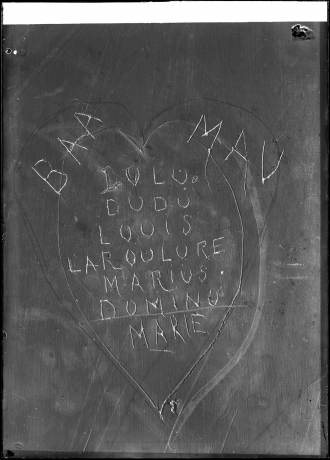 BAA MAU
DOLO
DUDU
LOUIS
LAROULURE
MARIUS.
DOMINUS
MARIE